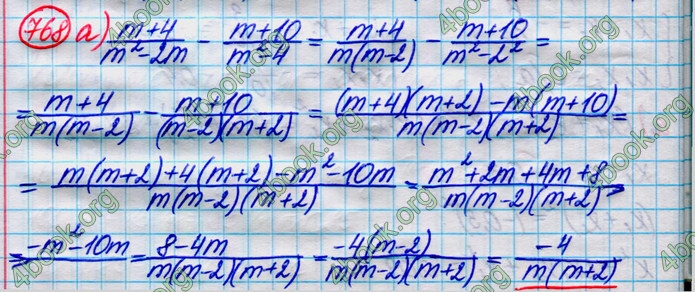 768 а) (m+4)/(m²-2m) - (m+10)/(m²-4) = (m+4)/(m(m-2)) - (m+10)/(m²-2²) =
= (m+4)/(m(m-2)) - (m+10)/((m-2)(m+2)) = ((m+4)(m+2)-m(m+10))/(m(m-2)(m+2)) =
= (m(m+2)+4(m+2)-m²-10m)/(m(m-2)(m+2)) = (m²+2m+4m+8)/(m(m-2)(m+2)) →
→ (-m²-10m) = (8-4m)/(m(m-2)(m+2)) = (-4(m-2))/(m(m-2)(m+2)) = (-4)/(m(m+2))
4book.org